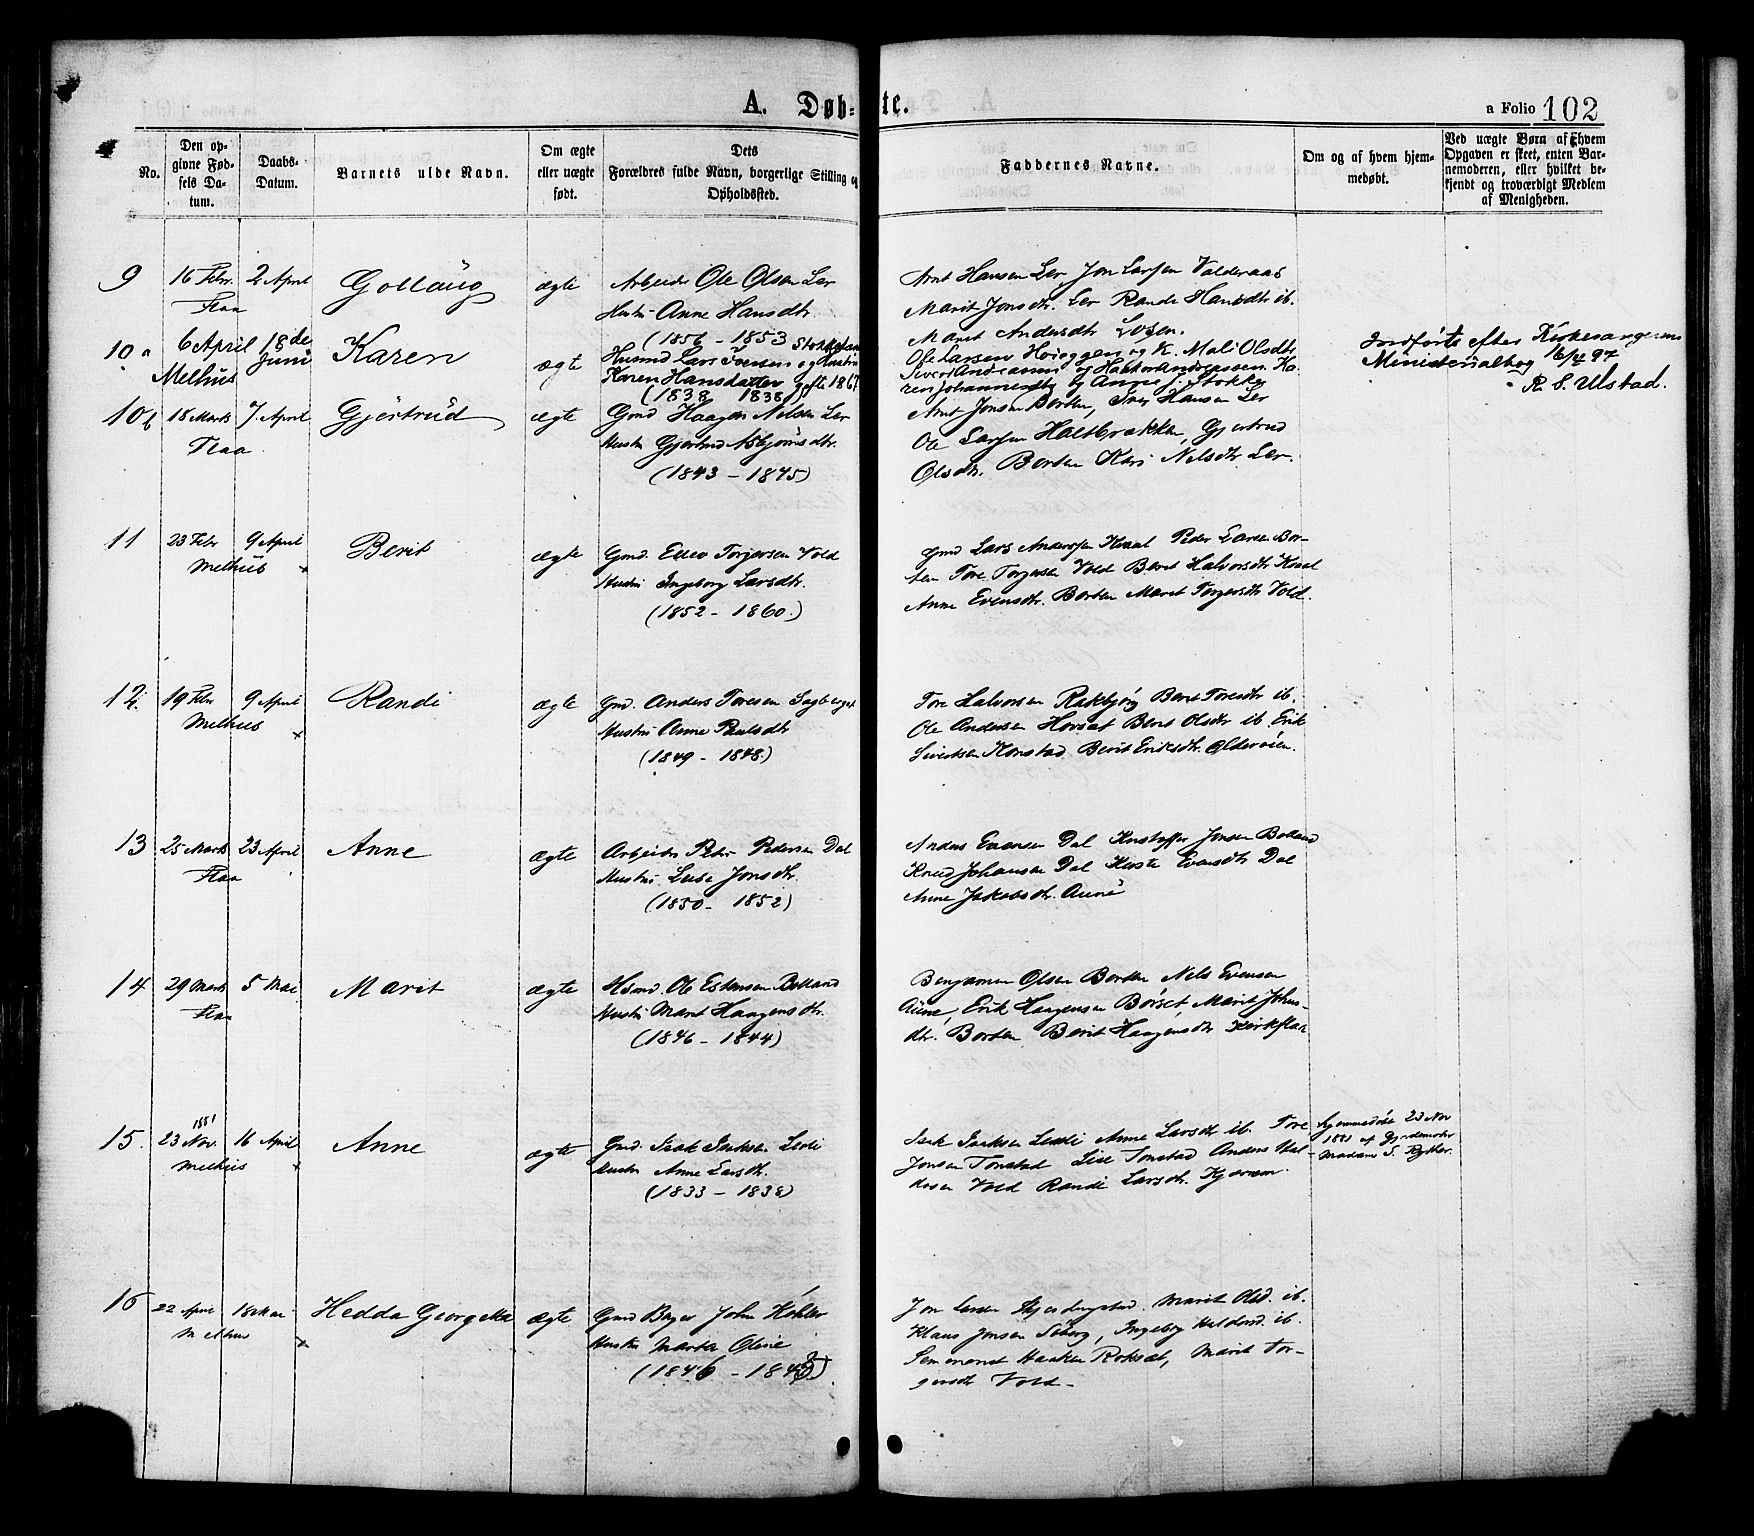 A. Døb-
te.
a Folio 102
No.
Den op-
givne Fød-
sels Da-
tum.
Daabs-
Datum.
Barnets fulde Navn.
Om ægte
eller uægte
født.
Dets
Forældres fulde Navn, borgerlige Stilling og
Opholdssted.
Faddernes Navne.
Om og af hvem hjem-
medøbt.
Ved uægte Børn af hvem
Opgaven er skeet, enten Bar-
nemoderen, eller hvilket be-
kjendt og troværdigt Medlem
af Menigheden.
9
16 Febr.
Flaa
2 April
Gollaug
ægte
Arbeider Ole Olsen Ler
Hustru Anne Hansdtr.
(1856 - 1853
Arnt Hansen Ler, Jon Larsen Valderaas
Marit Jonsdtr. Ler Rande Hansdtr ib.
Marit Andersdtr
10 a
6 April
Melhus
18de
Juni
Karen
ægte
Husmd Lars Iversen Stokkehan og Hustru
Karen Hansdatter gifte 1867
(1838 1838)
Ole Larsen Høieggen og K. Mali Olsdtr
Sivert Andreassen og Haldor Andreassen. Ka-
ren Johannesdtr og Anne J. Stokke
Indførte efter Kirkesangerens
Ministerialbog 16/4 97
R. S. Ulstad.
10 b
18 Marts
Flaa
7 April
Gjertrud
ægte
Gmd Haagen Nelsen Ler
Hustru Gjertrud Asbjørnsdtr.
(1843 - 1845)
Arnt Jonsen Borten, Iver Hansen Ler
Ole Larsen Haltbrakken, Gjertrud
Olsdtr. Borten Kari Nelsdtr Ler.
11
23 Febr
Melhus
9 April
Berit
ægte
Gmd. Even Torgersen Vold
Hustru Ingeborg Larsdtr.
(1852 - 1860.)
Gmd Lars Andersen Kvaal Peder Larsen Bor-
ten Tore Torgersen Vold Berit Halvorsdtr Kvaal
Anne Evensdtr. Borten Marit Torgersdtr Vold.
12.
19 Febr
Melhus
9 April
Randi
ægte
Gmd. Anders Toresen Sagberget
Hustru Anne Paulsdtr
(1849 - 1848)
Tore Halvorsen Rakbjørg Berit Toresdtr ib.
Ole Andersen Hovsat Berit Olsdtr ib. Erik
Sivertsen Konstad Berit Eriksdtr. Olderøien.
13
25 Marts
Flaa
23 April
Anne
ægte
Arbeider Peter Pedersen Dal
Hustru Luse Jonsdtr.
(1850 - 1852)
Anders Evensen Dal Kristoffer Jonsen Bolland
Knud Johansen Dal Kirste Evensdtr Dal
Anne Jakobsdtr. Aune
14
29 Marts
Flaa
5 Mai
Marit
ægte
Hsmd. Ole Estensen Bolland
Hustru Marit Haagensdtr.
(1846 - 1844)
Benjamin Olsen Borten Nels Evensen
Aune, Erik Haagensen Børset, Marit Johns-
dtr. Borten Berit Haagensdtr Kirkflaa
15.
1881
23 Nov.
Melhus
16 April
Anne
ægte
Gmd. Isak Isaksen Lerli
Hustru Anne Larsdtr.
(1833 - 1838)
Isak Isaksen Lerli Anne Larsdtr ib. Tore
Jonsen Tonstad Lise Tonstad Anders Hal-
dosen Vold Randi Larsdtr. Kjærem
Hjemmedøbt 23 Nov
1881 af Gjordemoder
Madame S. Rytter.
16
22 April
Melhus
18 Mai
Hedda Georgette
ægte
Gmd Bager John Køhler
Hustru Marta Oline
(1846 - 1843)
Jon Larsen Skjerdingstad. Marit Olsd. ib.
Klaus Jonsen Søberg, Ingeborg Haldorsd. ib.
Seminarist Haaken Roksæt, Marit Tor-
gersdtr Vold